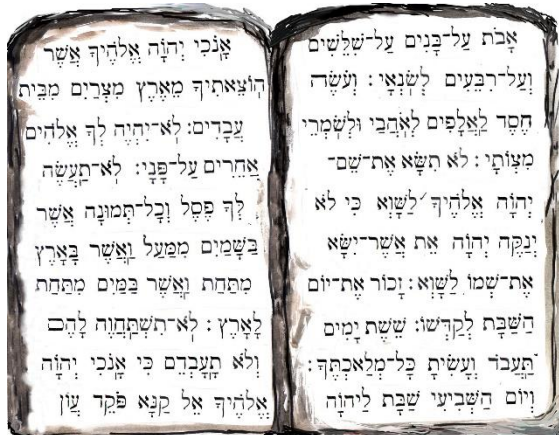 אָנֹכִי יְהוָה אֱלֹהֶיךָ אֲשֶׁר
הוֹצֵאתִיךָ מֵאֶרֶץ מִצְרַיִם מִבֵּית
עֲבָדִים: לֹא־יִהְיֶה לְךָ אֱלֹהִים
אֲחֵרִים עַל־פָּנָי: לֹא־תַעֲשֶׂה
לְךָ פֶסֶל וְכָל־תְּמוּנָה אֲשֶׁר
בַּשָּׁמַיִם מִמַּעַל וַאֲשֶׁר בָּאָרֶץ
מִתַּחַת וַאֲשֶׁר בַּמַּיִם מִתַּחַת
לָאָרֶץ: לֹא־תִשְׁתַּחֲוֶה לָהֶם
וְלֹא תָעָבְדֵם כִּי אָנֹכִי יְהוָה
אֱלֹהֶיךָ אֵל קַנָּא פֹּקֵד עֲוֹן
אָבֹת עַל־בָּנִים עַל־שִׁלֵּשִׁים
וְעַל־רִבֵּעִים לְשֹׂנְאָי: וְעֹשֶׂה
חֶסֶד לַאֲלָפִים לְאֹהֲבַי וּלְשֹׁמְרֵי
מִצְוֹתָי: לֹא תִשָּׂא אֶת־שֵׁם־
יְהוָה אֱלֹהֶיךָ לַשָּׁוְא כִּי לֹא
יְנַקֶּה יְהוָה אֵת אֲשֶׁר־יִשָּׂא
אֶת־שְׁמוֹ לַשָּׁוְא: זָכוֹר אֶת־יוֹם
הַשַּׁבָּת לְקַדְּשׁוֹ: שֵׁשֶׁת יָמִים
תַּעֲבֹד וְעָשִׂיתָ כָּל־מְלַאכְתֶּךָ:
וְיוֹם הַשְּׁבִיעִי שַׁבָּת לַיהוָה